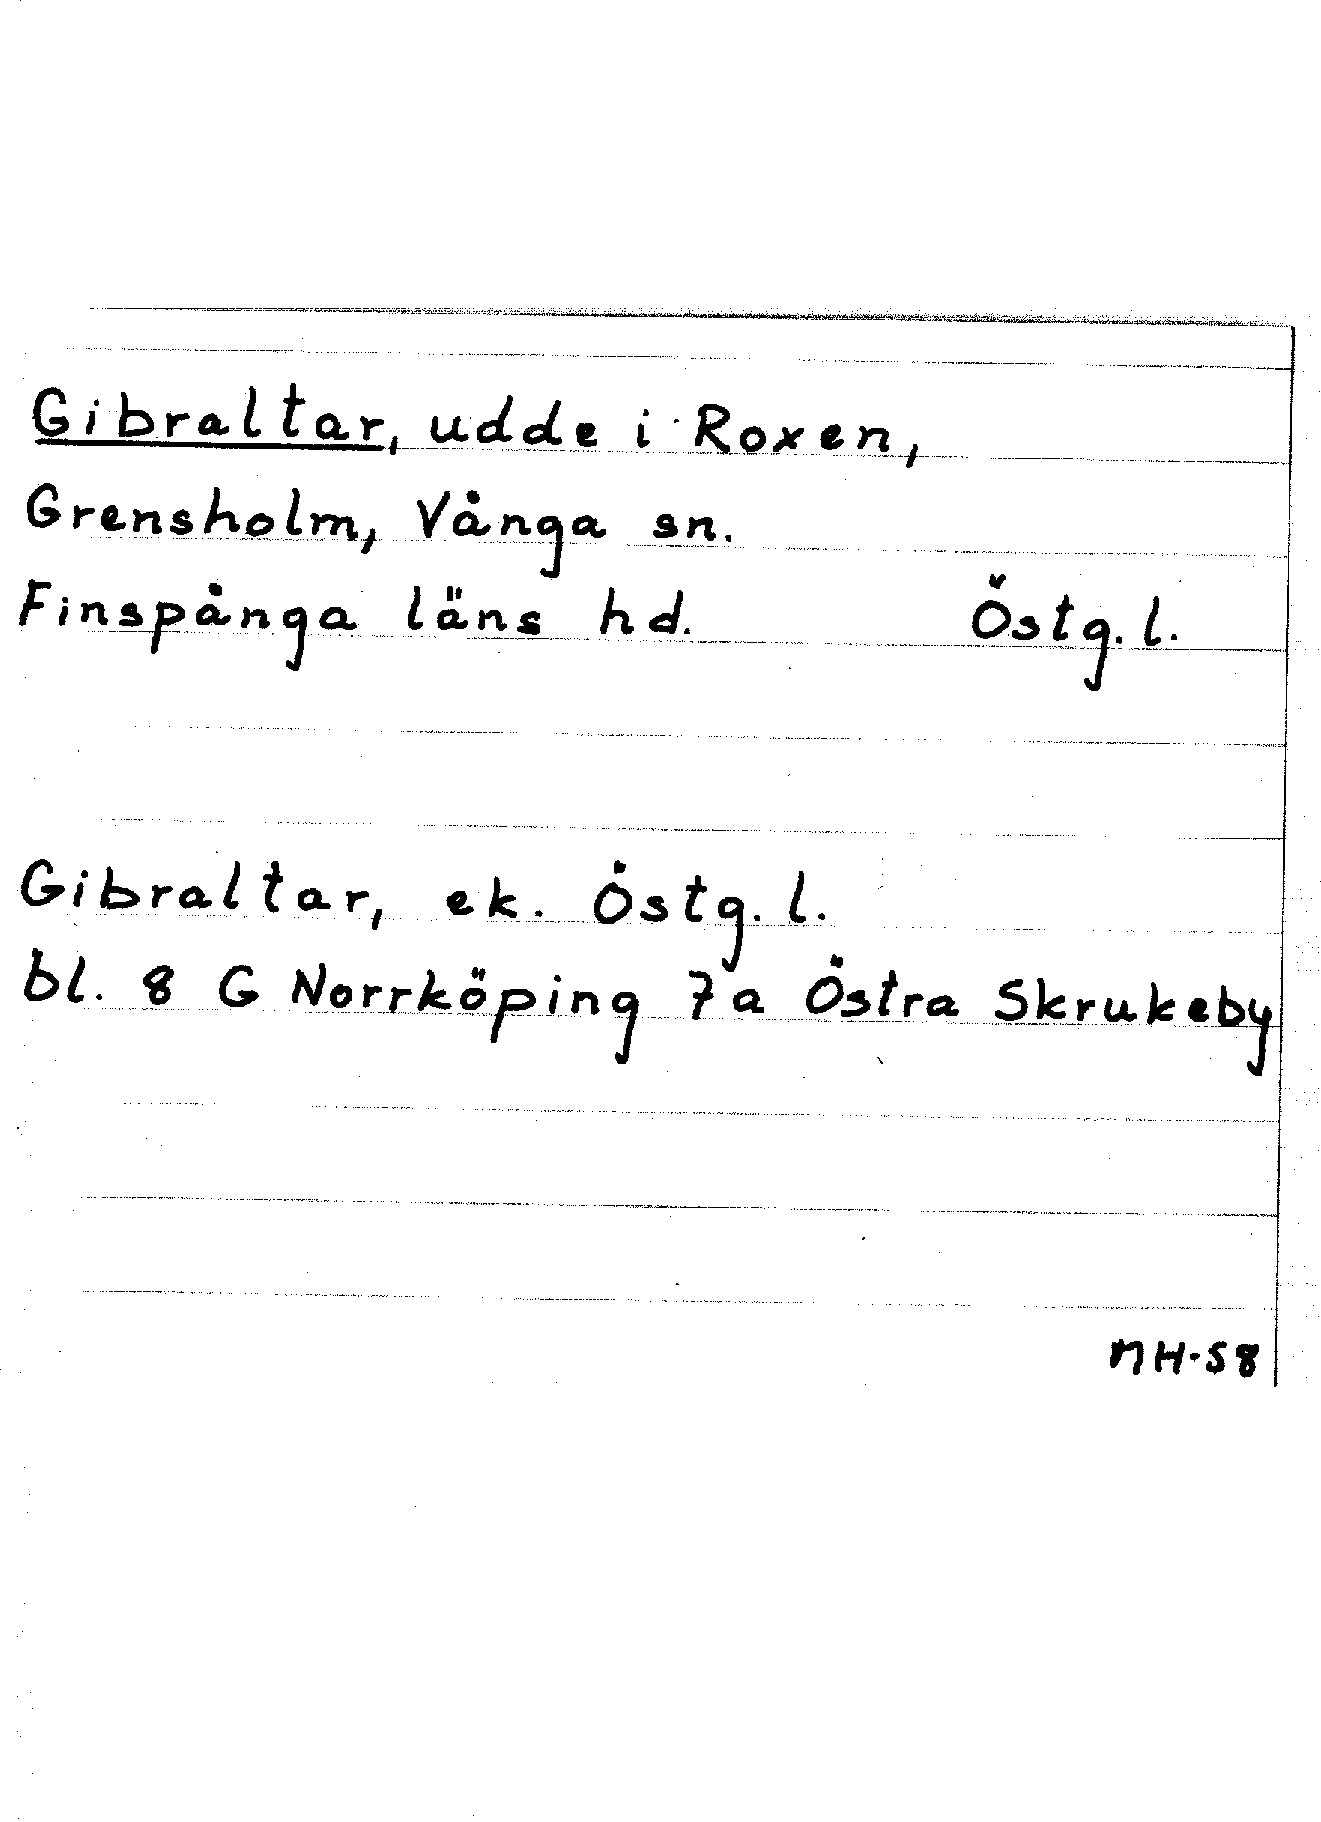 Gibraltar, udde i Roxen,
Grensholm, Vånga sn.
Finspånga läns hd. Östg. l.
Gibraltar, ek. Östg. l.
bl. 8 G Norrköping 7a Östra Skrukeby
MH-58